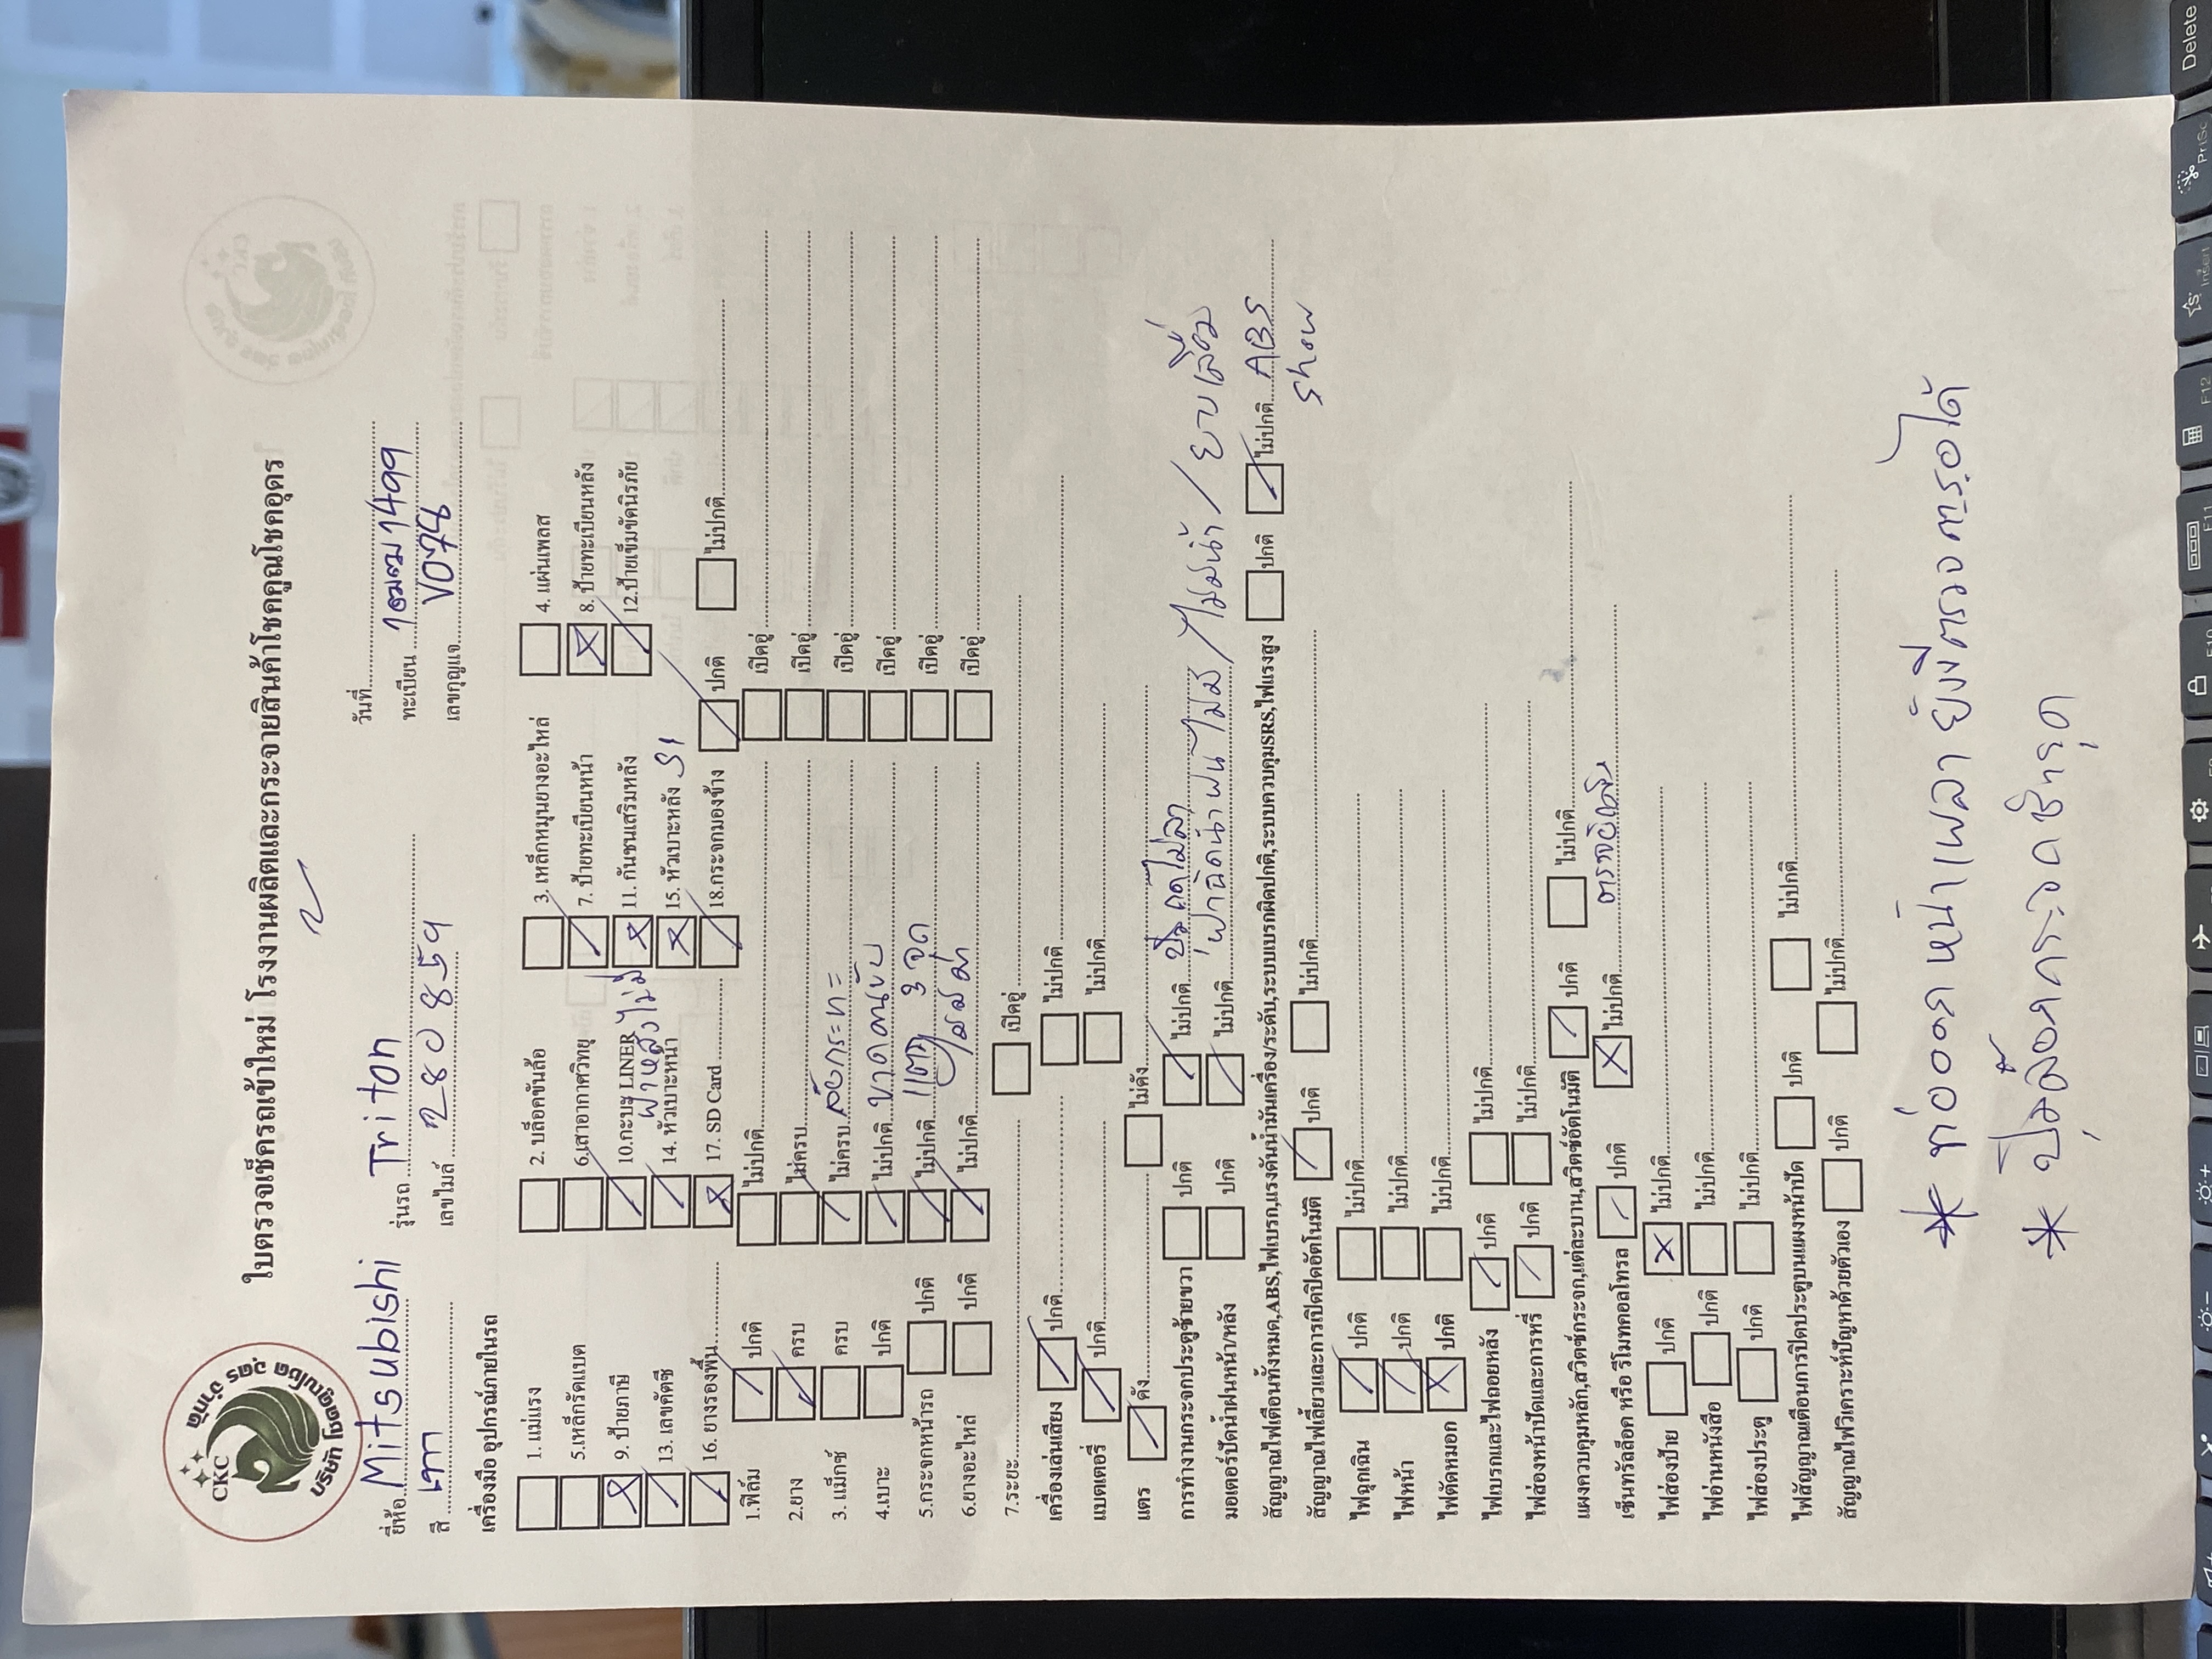 CKC
บริษัท โชคคูณโชค อุดร จำกัด
ใบตรวจเช็ครถเข้าใหม่ โรงงานผลิตและกระจายสินค้าโชคคูณโชคอุดร
วันที่
ยี่ห้อ Mitsubishi รุ่นรถ Triton ทะเบียน 1499
สี เทา เลขไมล์ 280859 เลขกุญแจ V078
เครื่องมือ อุปกรณ์ภายในรถ
1. แม่แรง 2. บล็อคขันล้อ 3. เหล็กหมุนยางอะไหล่ 4. แผ่นเพลส
5.เหล็กรัดแบต 6.เสาอากาศวิทยุ 7. ป้ายทะเบียนหน้า 8. ป้ายทะเบียนหลัง
9. ป้ายภาษี 10.กะบะ LINER 11. กันชนเสริมหลัง 12.ป้ายเข็มขัดนิรภัย
ฝาหลังไม่มี
13. เลขคัตซี 14. หัวเบาะหน้า 15. หัวเบาะหลัง
16. ยางรองพื้น 17. SD Card 18.กระจกมองข้าง ปกติ ไม่ปกติ
1.ฟิล์ม ปกติ ไม่ปกติ เปิดอู่
2.ยาง ครบ ไม่ครบ เปิดอู่
3. แม็กซ์ ครบ ไม่ครบ ล้อกระทะ เปิดอู่
4.เบาะ ปกติ ไม่ปกติ ขาดคนขับ เปิดอู่
5.กระจกหน้ารถ ปกติ ไม่ปกติ แตก 3 จุด เปิดอู่
6.ยางอะไหล่ ปกติ ไม่ปกติ ไม่มี เปิดอู่
7.ระยะ เปิดอู่
เครื่องเล่นเสียง ปกติ ไม่ปกติ
แบตเตอรี่ ปกติ ไม่ปกติ
แตร ดัง ไม่ดัง
การทำงานกระจกประตูซ้ายขวา ปกติ ไม่ปกติ
มอเตอร์ปัดน้ำฝนหน้า/หลัง ปกติ ไม่ปกติ ฝาฉีดน้ำฝนไม่มี / ไม่มีน้ำ / ยางเสื่อม
สัญญาณไฟเตือนทั้งหมด,ABS,ไฟเบรก,แรงดันน้ำมันเครื่อง/ระดับ,ระบบเบรกผิดปกติ,ระบบควบคุมSRS,ไฟแรงสูง ปกติ ไม่ปกติ ABS
show
สัญญาณไฟเลี้ยวและการเปิดปิดอัตโนมัติ ปกติ ไม่ปกติ
ไฟฉุกเฉิน ปกติ ไม่ปกติ
ไฟหน้า ปกติ ไม่ปกติ
ไฟตัดหมอก ปกติ ไม่ปกติ
ไฟเบรกและไฟถอยหลัง ปกติ ไม่ปกติ
ไฟส่องหน้าปัดและการหรี่ ปกติ ไม่ปกติ
แผงควบคุมหลัก,สวิตซ์กระจก,แต่ละบาน,สวิตซ์อัตโนมัติ ปกติ ไม่ปกติ
เซ็นทรัลล็อค หรือ รีโมทคอลโทรล ปกติ ไม่ปกติ
ไฟส่องป้าย ปกติ ไม่ปกติ
ไฟอ่านหนังสือ ปกติ ไม่ปกติ
ไฟส่องประตู ปกติ ไม่ปกติ
ไฟสัญญาณเตือนการปิดประตูบนแผงหน้าปัด ปกติ ไม่ปกติ
สัญญาณไฟวิเคราะห์ปัญหาด้วยตัวเอง ปกติ ไม่ปกติ
* ท่อออก หน้าเพลา ยังมีตรวจกรองได้
* ปุ่มล็อคกระจกชำรุด
Delete
PrtSc
Insert
F12
F11
F10